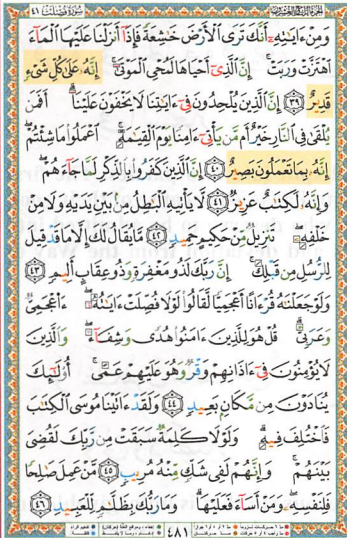 سورة فصلت ٤١
وَمِنْ ءَايَٰتِهِۦٓ أَنَّكَ تَرَى ٱلْأَرْضَ خَٰشِعَةً فَإِذَآ أَنزَلْنَا عَلَيْهَا ٱلْمَآءَ
ٱهْتَزَّتْ وَرَبَتْ ۚ إِنَّ ٱلَّذِىٓ أَحْيَاهَا لَمُحْىِ ٱلْمَوْتَىٰٓ ۚ إِنَّهُۥ عَلَىٰ كُلِّ شَىْءٍ
قَدِيرٌ ٣٩ إِنَّ ٱلَّذِينَ يُلْحِدُونَ فِىٓ ءَايَٰتِنَا لَا يَخْفَوْنَ عَلَيْنَآ ۗ أَفَمَن
يُلْقَىٰ فِى ٱلنَّارِ خَيْرٌ أَم مَّن يَأْتِىٓ ءَامِنًا يَوْمَ ٱلْقِيَٰمَةِ ۚ ٱعْمَلُوا۟ مَا شِئْتُمْ ۖ
إِنَّهُۥ بِمَا تَعْمَلُونَ بَصِيرٌ ٤٠ إِنَّ ٱلَّذِينَ كَفَرُوا۟ بِٱلذِّكْرِ لَمَّا جَآءَهُمْ ۖ
وَإِنَّهُۥ لَكِتَٰبٌ عَزِيزٌ ٤١ لَّا يَأْتِيهِ ٱلْبَٰطِلُ مِنۢ بَيْنِ يَدَيْهِ وَلَا مِنْ
خَلْفِهِۦ ۖ تَنزِيلٌ مِّنْ حَكِيمٍ حَمِيدٍ ٤٢ مَّا يُقَالُ لَكَ إِلَّا مَا قَدْ قِيلَ
لِلرُّسُلِ مِن قَبْلِكَ ۚ إِنَّ رَبَّكَ لَذُو مَغْفِرَةٍ وَذُو عِقَابٍ أَلِيمٍ ٤٣
وَلَوْ جَعَلْنَٰهُ قُرْءَانًا أَعْجَمِيًّا لَّقَالُوا۟ لَوْلَا فُصِّلَتْ ءَايَٰتُهُۥٓ ۖ ءَا۬عْجَمِىٌّ
وَعَرَبِىٌّ ۗ قُلْ هُوَ لِلَّذِينَ ءَامَنُوا۟ هُدًى وَشِفَآءٌ ۖ وَٱلَّذِينَ
لَا يُؤْمِنُونَ فِىٓ ءَاذَانِهِمْ وَقْرٌ وَهُوَ عَلَيْهِمْ عَمًى ۚ أُو۟لَٰٓئِكَ
يُنَادَوْنَ مِن مَّكَانٍۭ بَعِيدٍ ٤٤ وَلَقَدْ ءَاتَيْنَا مُوسَى ٱلْكِتَٰبَ
فَٱخْتُلِفَ فِيهِ ۗ وَلَوْلَا كَلِمَةٌ سَبَقَتْ مِن رَّبِّكَ لَقُضِىَ
بَيْنَهُمْ ۚ وَإِنَّهُمْ لَفِى شَكٍّ مِّنْهُ مُرِيبٍ ٤٥ مَّنْ عَمِلَ صَٰلِحًا
فَلِنَفْسِهِۦ ۖ وَمَنْ أَسَآءَ فَعَلَيْهَا ۗ وَمَا رَبُّكَ بِظَلَّٰمٍ لِّلْعَبِيدِ ٤٦
٤٨١